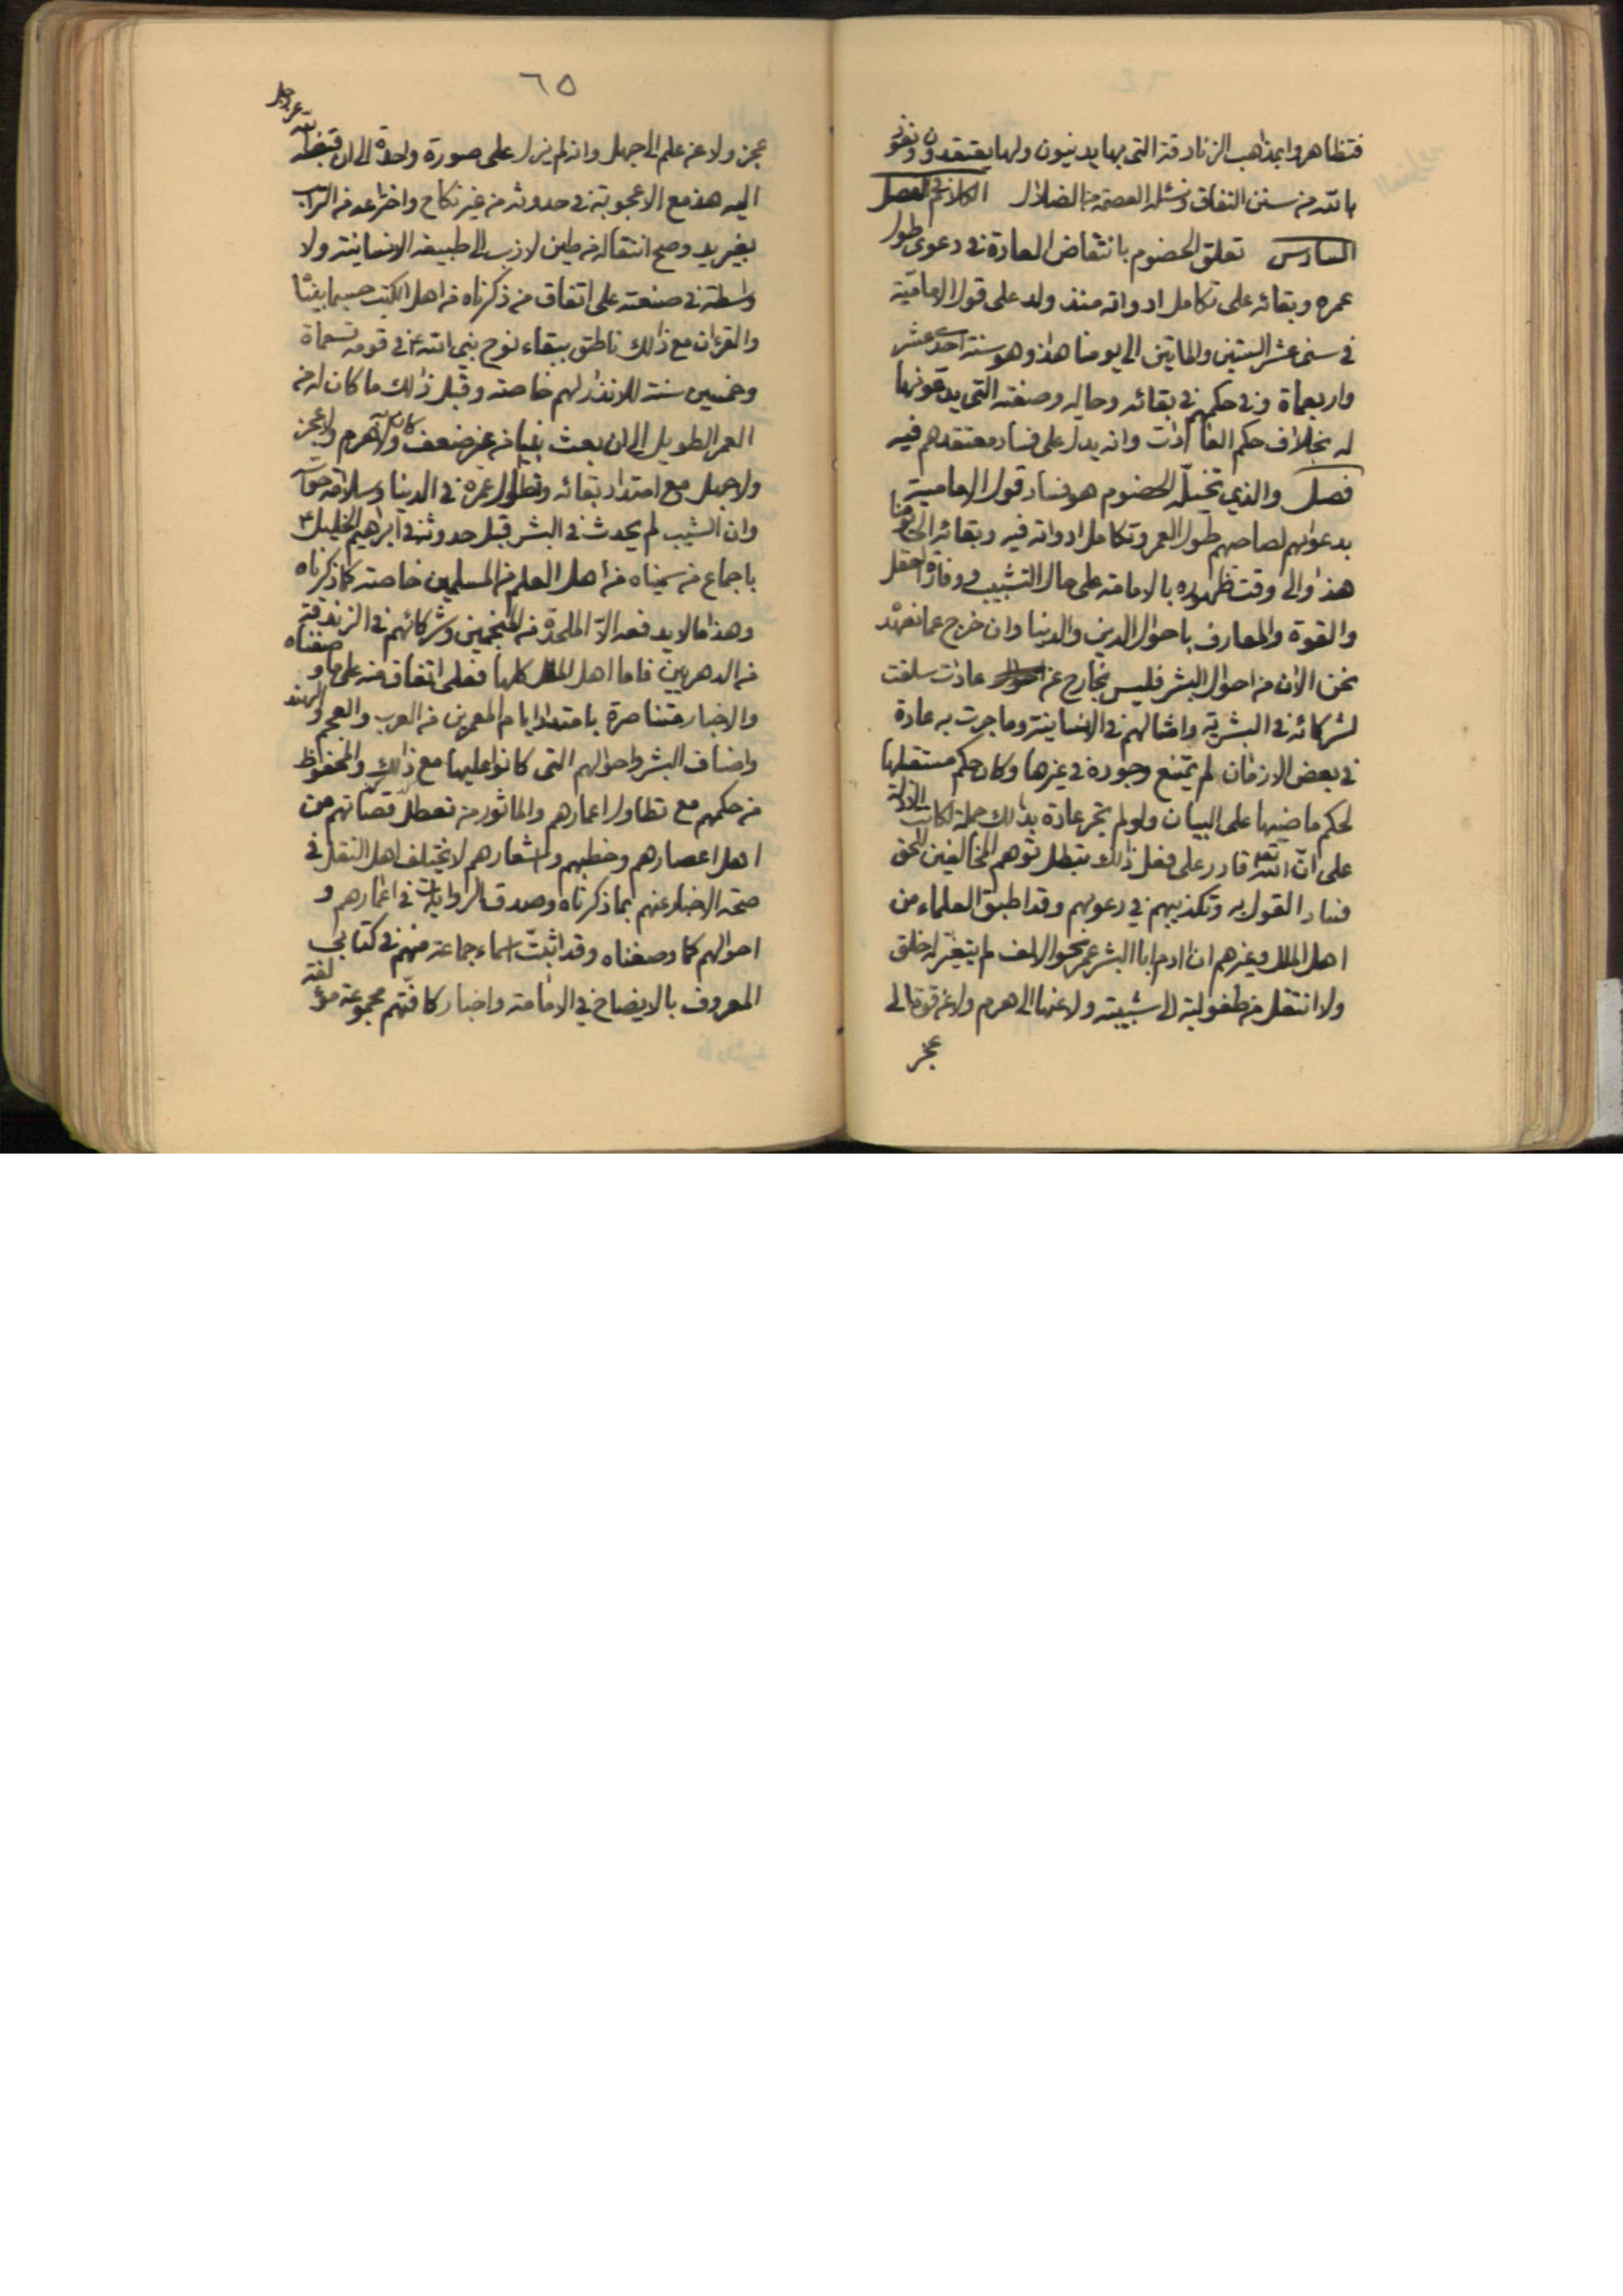 فتظاهروا بمذهب الزنادقة التي بها يدينون ولها يعتقدون ونعوذ
بالله من سنن النفاق ونسئله العصمة من الضلال الكلام في الفصل
السادس تعلق الخصوم بانتقاض العادة في دعوى طول
عمره وبقائه على تكامل ادواته منذ ولد على قول الامامية
في سنى عشر الستين والماتين الى يومنا هذا وهو سنة احد عشر
واربعماة وفي حكمهم في بقائه وحاله وصفته التي يدعونها
له بخلاف حكم العادات وانه يدل على فساد معتقدهم فيه
فصل والذي تخيله الخصوم هو فساد قول الامامية
بدعواهم لصاحبهم طول العمر وتكامل ادواته فيه وبقائه الى يومنا
هذا والى وقت ظهوره بالامامة على حال التشبيب ووفارة العقل
والقوة والمعارف باحوال الدين والدنيا وان خرج عما نعهد
نحن الان من احوال البشر فليس بخارج عن عادات سلفت
لشركائه في البشرية وامثالهم في الانسانية وما جرت به عادة
في بعض الازمان لم يمتنع وجوده في غيرها وكان حكم مستقبلها
لحكم ماضيها على البيان ولو لم تجر عادة بذلك جملة لكانت الادلة
على ان الله تعه قادر على فعل ذلك تبطل توهم المخالفين للحق
فساد القول به وتكذيبهم في دعويهم وقد اطبق العلماء من
اهل الملل وغيرهم ان ادم ابا البشر عمر نحو الالف لم يتغير له خلق
ولا انتقل من طفولية الى شبيبة ولا عنها الى هرم ولا عن قوة الى
عجز
٦٥
عجز ولا عن علم الى جهل وانه لم يزل على صورة واحدة الى ان قبضه الله عز وجل
اليه هذا مع الاعجوبة في حدوثه من غير نكاح واختراعه من التراب
بغير يد وصح انتقاله من طين لازب الى طبيعة الانسانية ولا
واسطة في صنعته على اتفاق من ذكرناه من اهل الكتب حسبما بينا
والقران مع ذلك ناطق ببقاء نوح نبي الله ع في قومه تسعماة
وخمسين سنة للانذار لهم خاصة وقبل ذلك ما كان له من
العمر الطويل الى ان بعث نبيا من غير ضعف كان به ولا هرم ولا عجز
ولا جهل مع امتداد بقائه وتطاول عمره في الدنيا وسلامة حواسه
وان الشيب لم يحدث في البشر قبل حدوثه في ابراهيم الخليل ع
باجماع من سميناه من اهل العلم من المسلمين خاصة كما ذكرناه
وهذا ما لا يدفعه الا الملحدة من المنجمين وشركائهم في الزندقة
من الدهريين فاما اهل الملل كلها فعلى اتفاق منه على ما وصفناه
والاخبار متناصرة بامتداد ايام المعمرين من العرب والعجم والهند
واصناف البشر واحوالهم التي كانوا عليها مع ذلك والمحفوظ
من حكمهم مع تطاول اعمارهم والماثور من تفصيل قصاتهم من
اهل اعصارهم وخطبهم واشعارهم لا يختلف اهل النقل في
صحة الاخبار عنهم بما ذكرناه وصدق الروايات في اعمارهم و
احوالهم كما وصفناه وقد اثبت اسماء جماعة منهم في كتابي
المعروف بالايضاح في الامامة واخبار كافتهم مجموعة مؤلفة